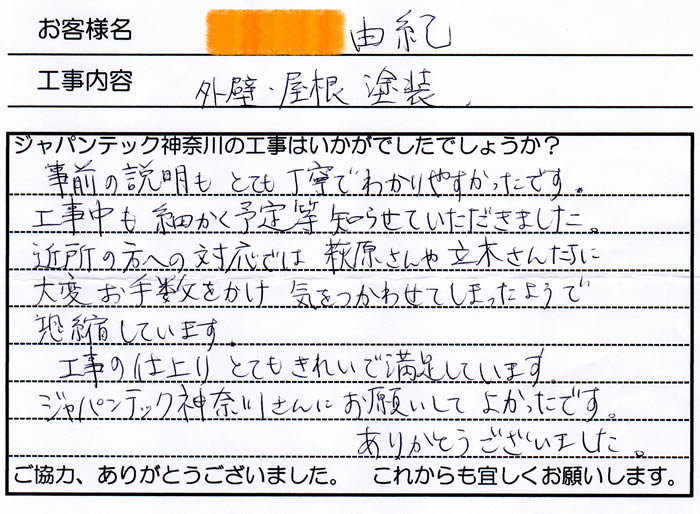 お客様名 由紀
工事内容 外壁・屋根 塗装
ジャパンテック神奈川の工事はいかがでしたでしょうか？
事前の説明も とても 丁寧で わかりやすかったです。
工事中も 細かく予定等 知らせていただきました。
近所の方への対応では 萩原さんや 立木さんたちに
大変 お手数をかけ 気をつかわせてしまったようで
恐縮しています。
工事の仕上り とてもきれいで満足しています
ジャパンテック神奈川さんに お願いして よかったです。
ありがとうございました。
ご協力、ありがとうございました。 これからも宜しくお願いします。